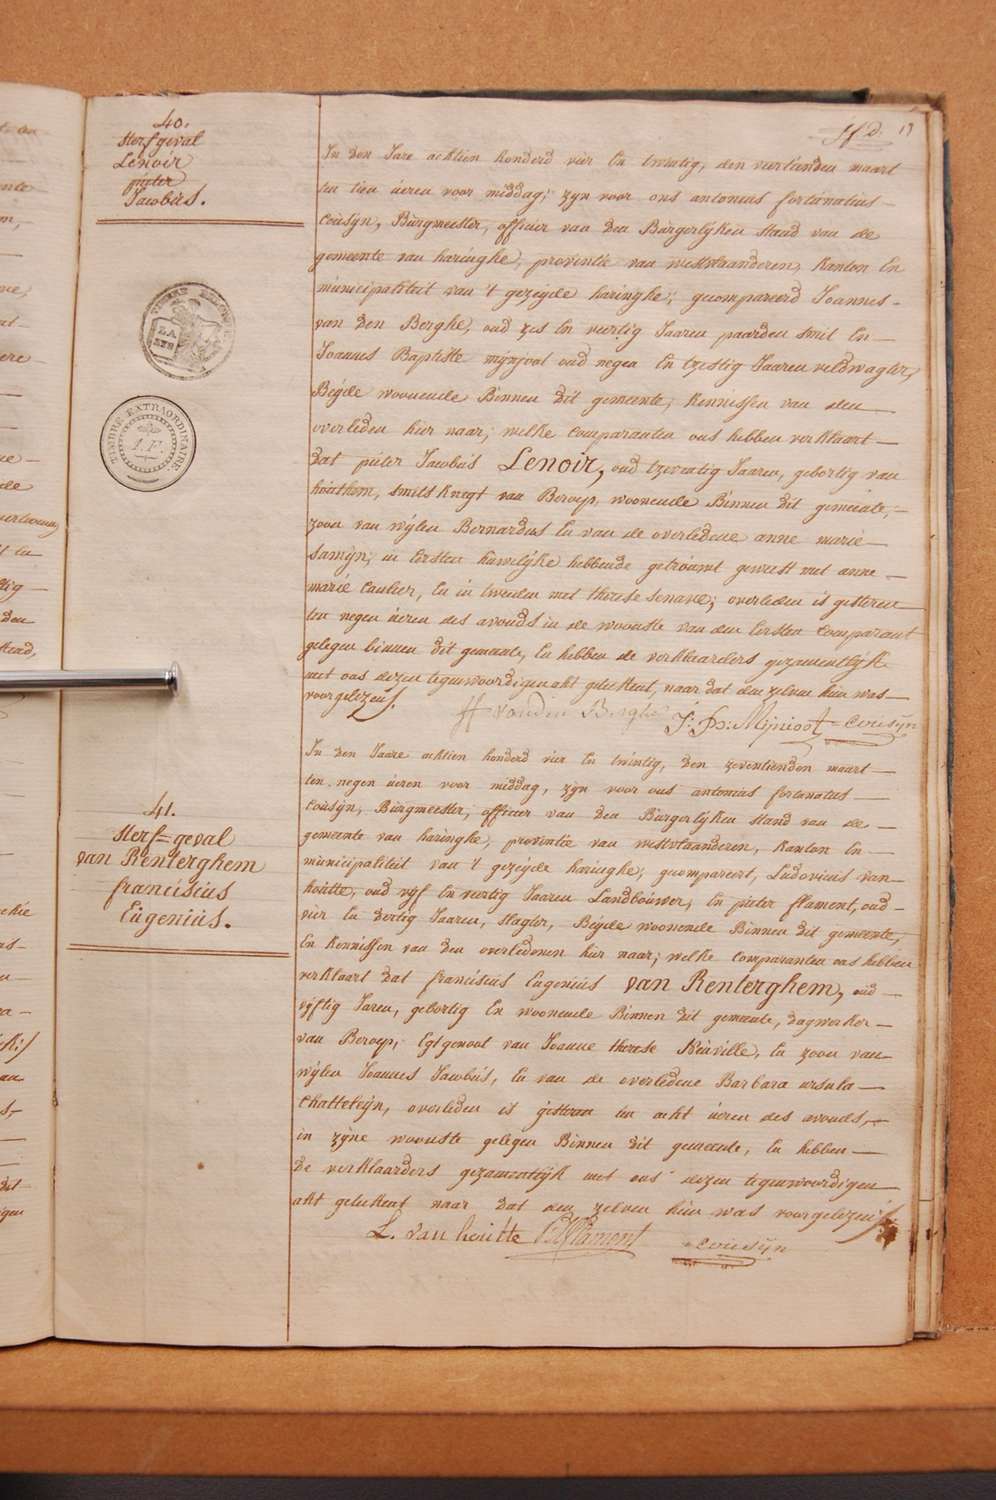 40.
Sterfgeval
Lenoir
pieter
Jacobùs.
TIMBRE EXTRAORDINAIRE
1. F.
13
In den Jare achtien honderd vier En twintig, den veertienden maart
ten tien ùeren voor middag; zyn voor ons antonius fortùnatiùs
Coùsÿn, Bùrgmeester, officier van den Bùrgerlÿken stand van de
gemeente van haringhe, provintie van westvlaanderen, Kanton En
mùnicipaliteit van 't gezeÿde haringhe; gecompareerd Joannes
van den Berghe, oud zes En veertig Jaaren paarden smit En
Joannes Baptiste mÿnjool oud negen En tzestig Jaaren veldwagter,
Beÿde woonende Binnen dit gemeente; Kennissen van den
overleden hier naar; welke comparanten ons hebben verklaart
dat pieter Jacobùs Lenoir, oud tzeventig Jaaren, gebortig van
hoùthem, smits Knegt van Beroep, woonende Binnen dit gemeente,
zoon van wÿlen Bernardùs En van de overledene anne marie
Samÿn; in Eersten hùwelÿke hebbende getroùwt geweest met anne
marie Caulier, En in tweeden met therese Senave; overleden is gisteren
ten negen ùeren des avonds in de woonste van den Eersten Comparant
gelegen binnen dit gemeente, En hebben de verklaarders gezamentlÿk
met ons dezen tegenwoordigen akt geteekent, naar dat den zelven hùn was
voorgelezen.
Vanden Berghe J: B: Mijniool Coùsÿn
41.
Sterf=geval
van Renterghem
franciscùs
Eùgeniùs.
In den Jaare achtien honderd vier En twintig, den zeventienden maart
ten negen ùeren voor middag, zÿn voor ons antonius fortùnatùs
Coùsÿn, Bùrgmeester, officier van den Bùrgerlÿken stand van de
gemeente van haringhe, provintie van westvlaanderen, Kanton En
mùnicipaliteit van 't gezeÿde haringhe; gecompareert, Ludovicùs van
hoùtte, oud vÿf En veertig Jaaren Landbouwer, En pieter flament, oud
vier En dertig Jaaren, slagter, Beÿde woonende Binnen dit gemeente,
En Kennissen van den overledenen hier naar; welke comparanten ons hebben
verklaart dat franciscùs Eùgeniùs van Renterghem, oud
vÿftig Jaren, gebortig En woonende Binnen dit gemeente, dagwerker
van Beroep, Egtgenoot van Joanne therese Neùville, En zoon van
wÿlen Joannes Jacobùs, En van de overledene Barbara ursula
Chatteleÿn, overleden is gisteren ten acht ùeren des avonds,
in zÿne woonste gelegen Binnen dit gemeente, En hebben
de verklaarders gezamentlÿk met ons dezen tegenwoordigen
akt geteekent naar dat den zelven hùn was voorgelezen
L. van hoùtte P flament Coùsÿn